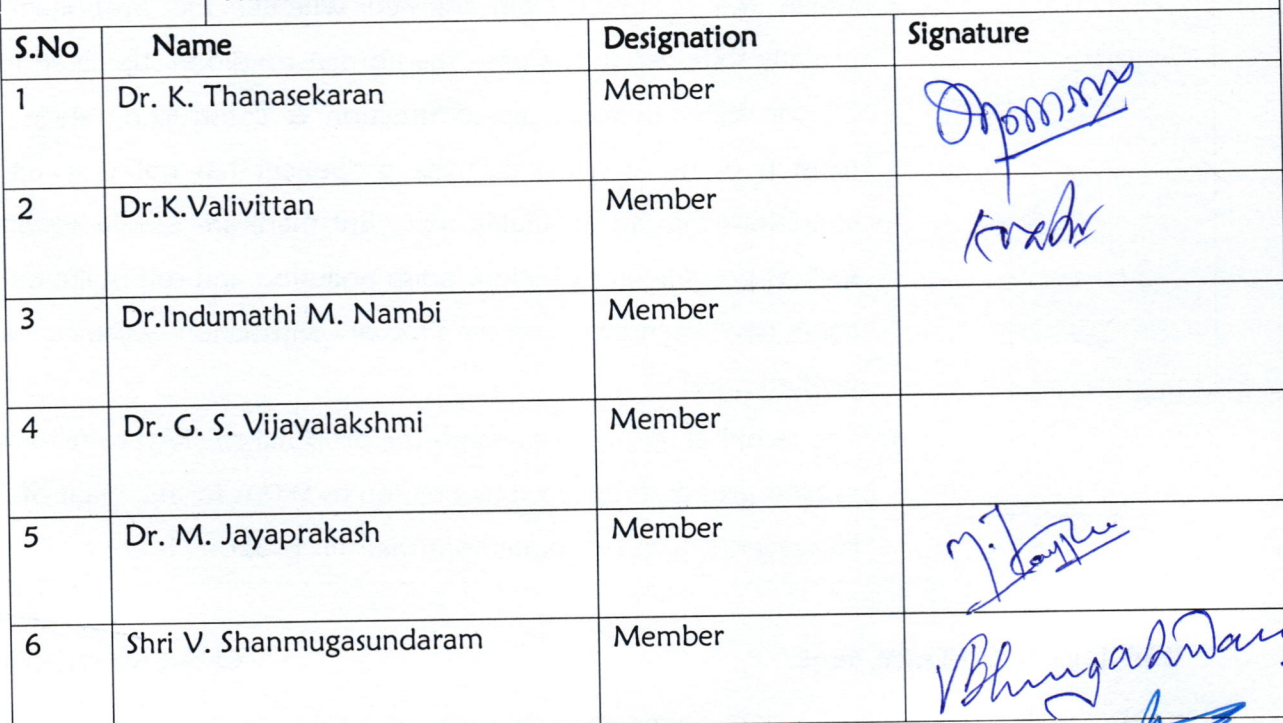 S.No Name Designation Signature
1 Dr. K. Thanasekaran Member
2 Dr.K.Valivittan Member
3 Dr.Indumathi M. Nambi Member
4 Dr. G. S. Vijayalakshmi Member
5 Dr. M. Jayaprakash Member
6 Shri V. Shanmugasundaram Member